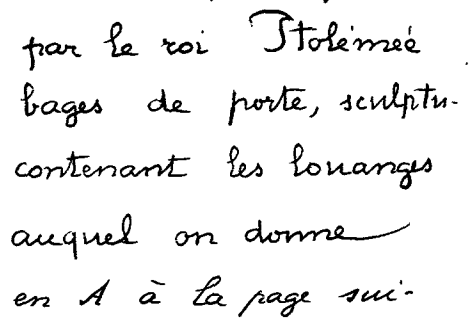 par le roi Ptolémée
bages de porte, sculptu-
contenant les louanges
auquel on donne
en A à la page sui-